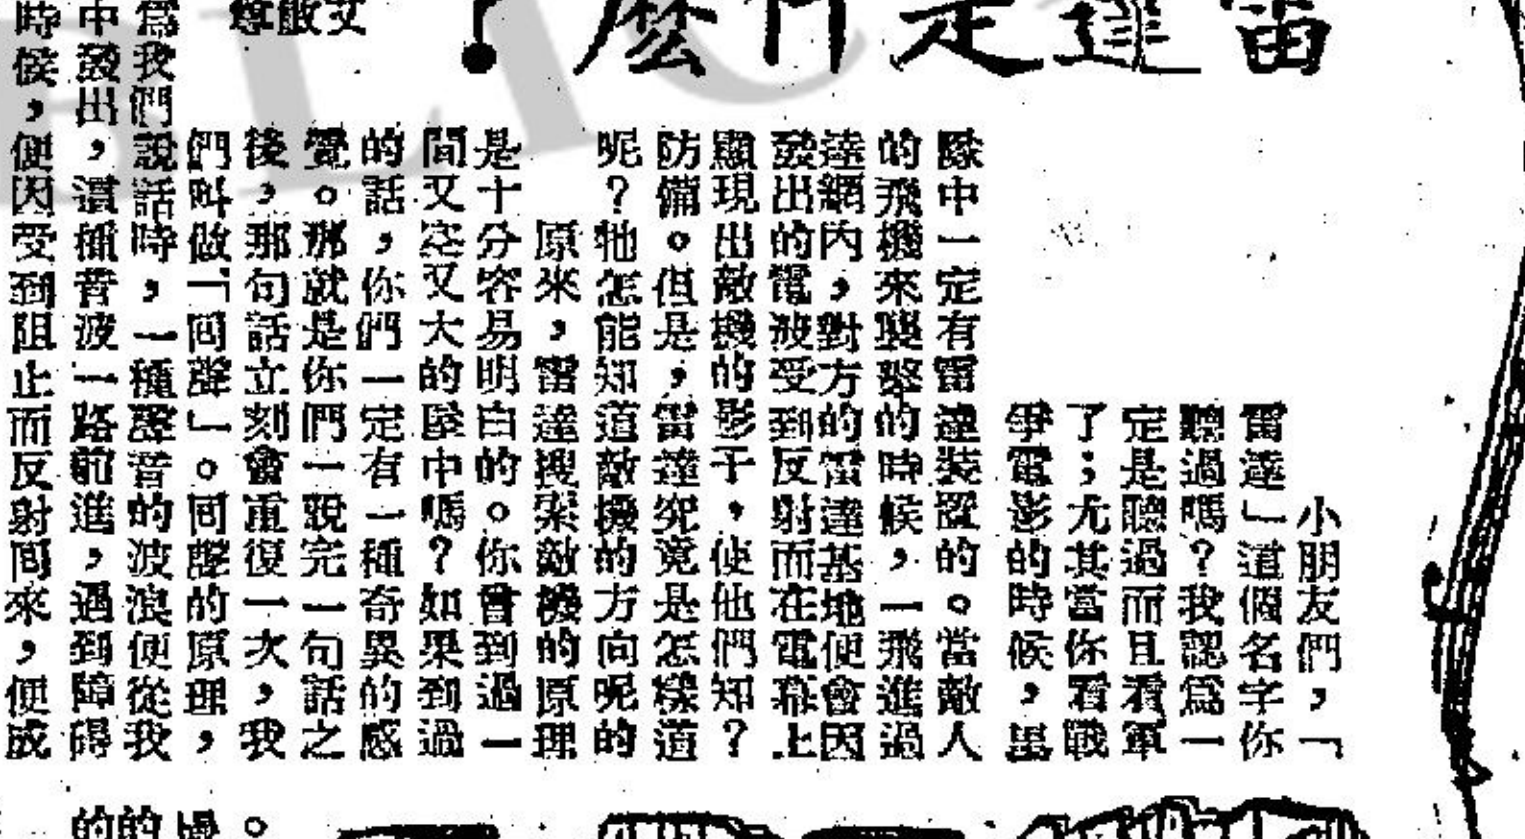 雷達是什麼？
小朋友們，「
雷達」這個名字你
聽過嗎？我認爲一
定是聽過而且看軍
了；尤其當你看戰
爭電影的時候，
隊中一定有雷達裝置的。當敵人
的飛機來襲擊的時候，一飛進過
達網內，對方的雷達基地便會因
發出的電波受到反射而在電幕上
顯現出敵機的影子，使他們知？
防備。但是，雷達究竟是怎樣道
呢？牠怎能知道敵機的方向呢的
原來，雷達搜索敵機的原理
是十分容易明白的。你曾到過一
間又空又大的屋中嗎？如果到過
的話，你們一定有一種奇異的感
覺。那就是你們一說完一句話之
後，那句話立刻會重復一次，我
們叫做「囘聲」。囘聲的原理，
爲我們說話時，一種聲音的波浪便從我
中發出，這種音波一路前進，遇到障碍
時候，便因受到阻止而反射囘來，便成